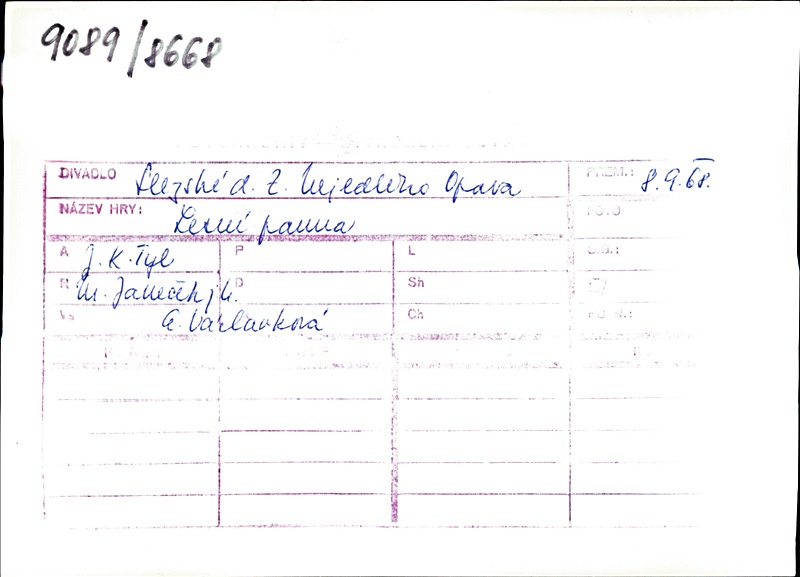 9089/8668
DIVADLO Slezské d. Z. Nejedlého Opava PREM.: 8.9.68.
NÁZEV HRY: Lesní panna
A J. K. Tyl P L
R M. Janeček j. h. D Sh
Vs A. Václavková Ch